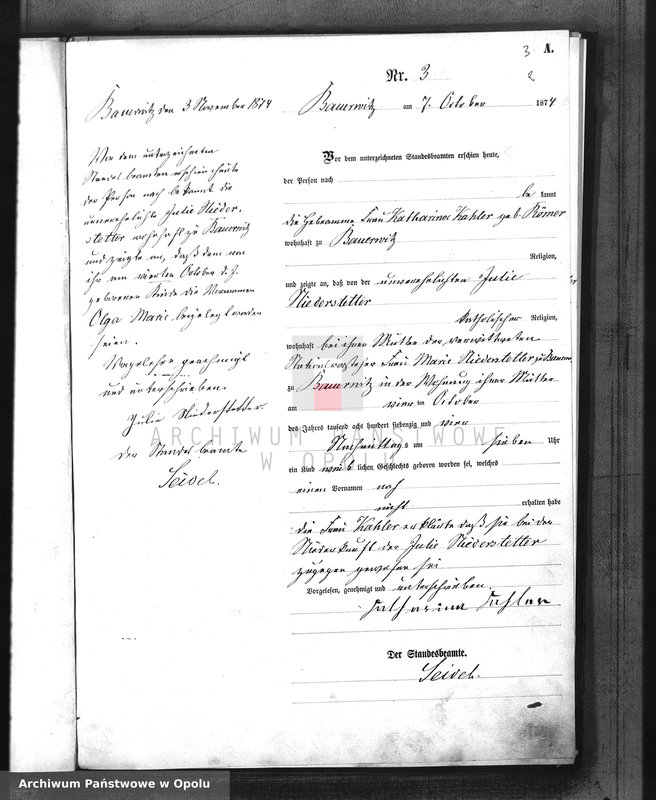 3
A.
Nr. 3
2
Bauerwitz am 7. October 1874
Vor dem unterzeichneten Standesbeamten erschien heute,
der Person nach
be kannt
die Hebeamme Frau Katharina Kahler geb. Römer
wohnhaft zu Bauerwitz
Religion,
und zeigte an, daß von der unverehelichten Julie
Niederstetter
katholischer Religion,
wohnhaft bei ihrer Mutter der verwittweten
Frau Marie Niederstetter
zu Bauerwitz in der Wohnung ihrer Mutter
am vier ten October
des Jahres tausend acht hundert siebenzig und vier
Nachmittags um sieben Uhr
ein Kind weib lichen Geschlechts geboren worden sei, welches
einen Vornamen noch
nicht erhalten habe
die Frau Kahler erklärte daß sie bei der
Niederkunft der Julie Niederstetter
zugegen gewesen sei
Vorgelesen, genehmigt und unterschrieben.
Katharina Kahler
Der Standesbeamte.
Seidel.
Bauerwitz den 3 November 1874
Vor dem unterzeichneten
Standesbeamten erschien heute
der Person nach bekannt die
unverehelichte Julie Nieder-
stetter wohnhaft zu Bauerwitz
und zeigte an, daß dem von
ihr am vierten October d. J.
geborenen Kinde die Vornamen
Olga Marie beigelegt worden
seien.
Vorgelesen genehmigt
und unterschrieben.
Julie Niederstetter
Der Standesbeamte
Seidel.
ARCHIWUM PAŃSTWOWE
W OPOLU
Archiwum Państwowe w Opolu